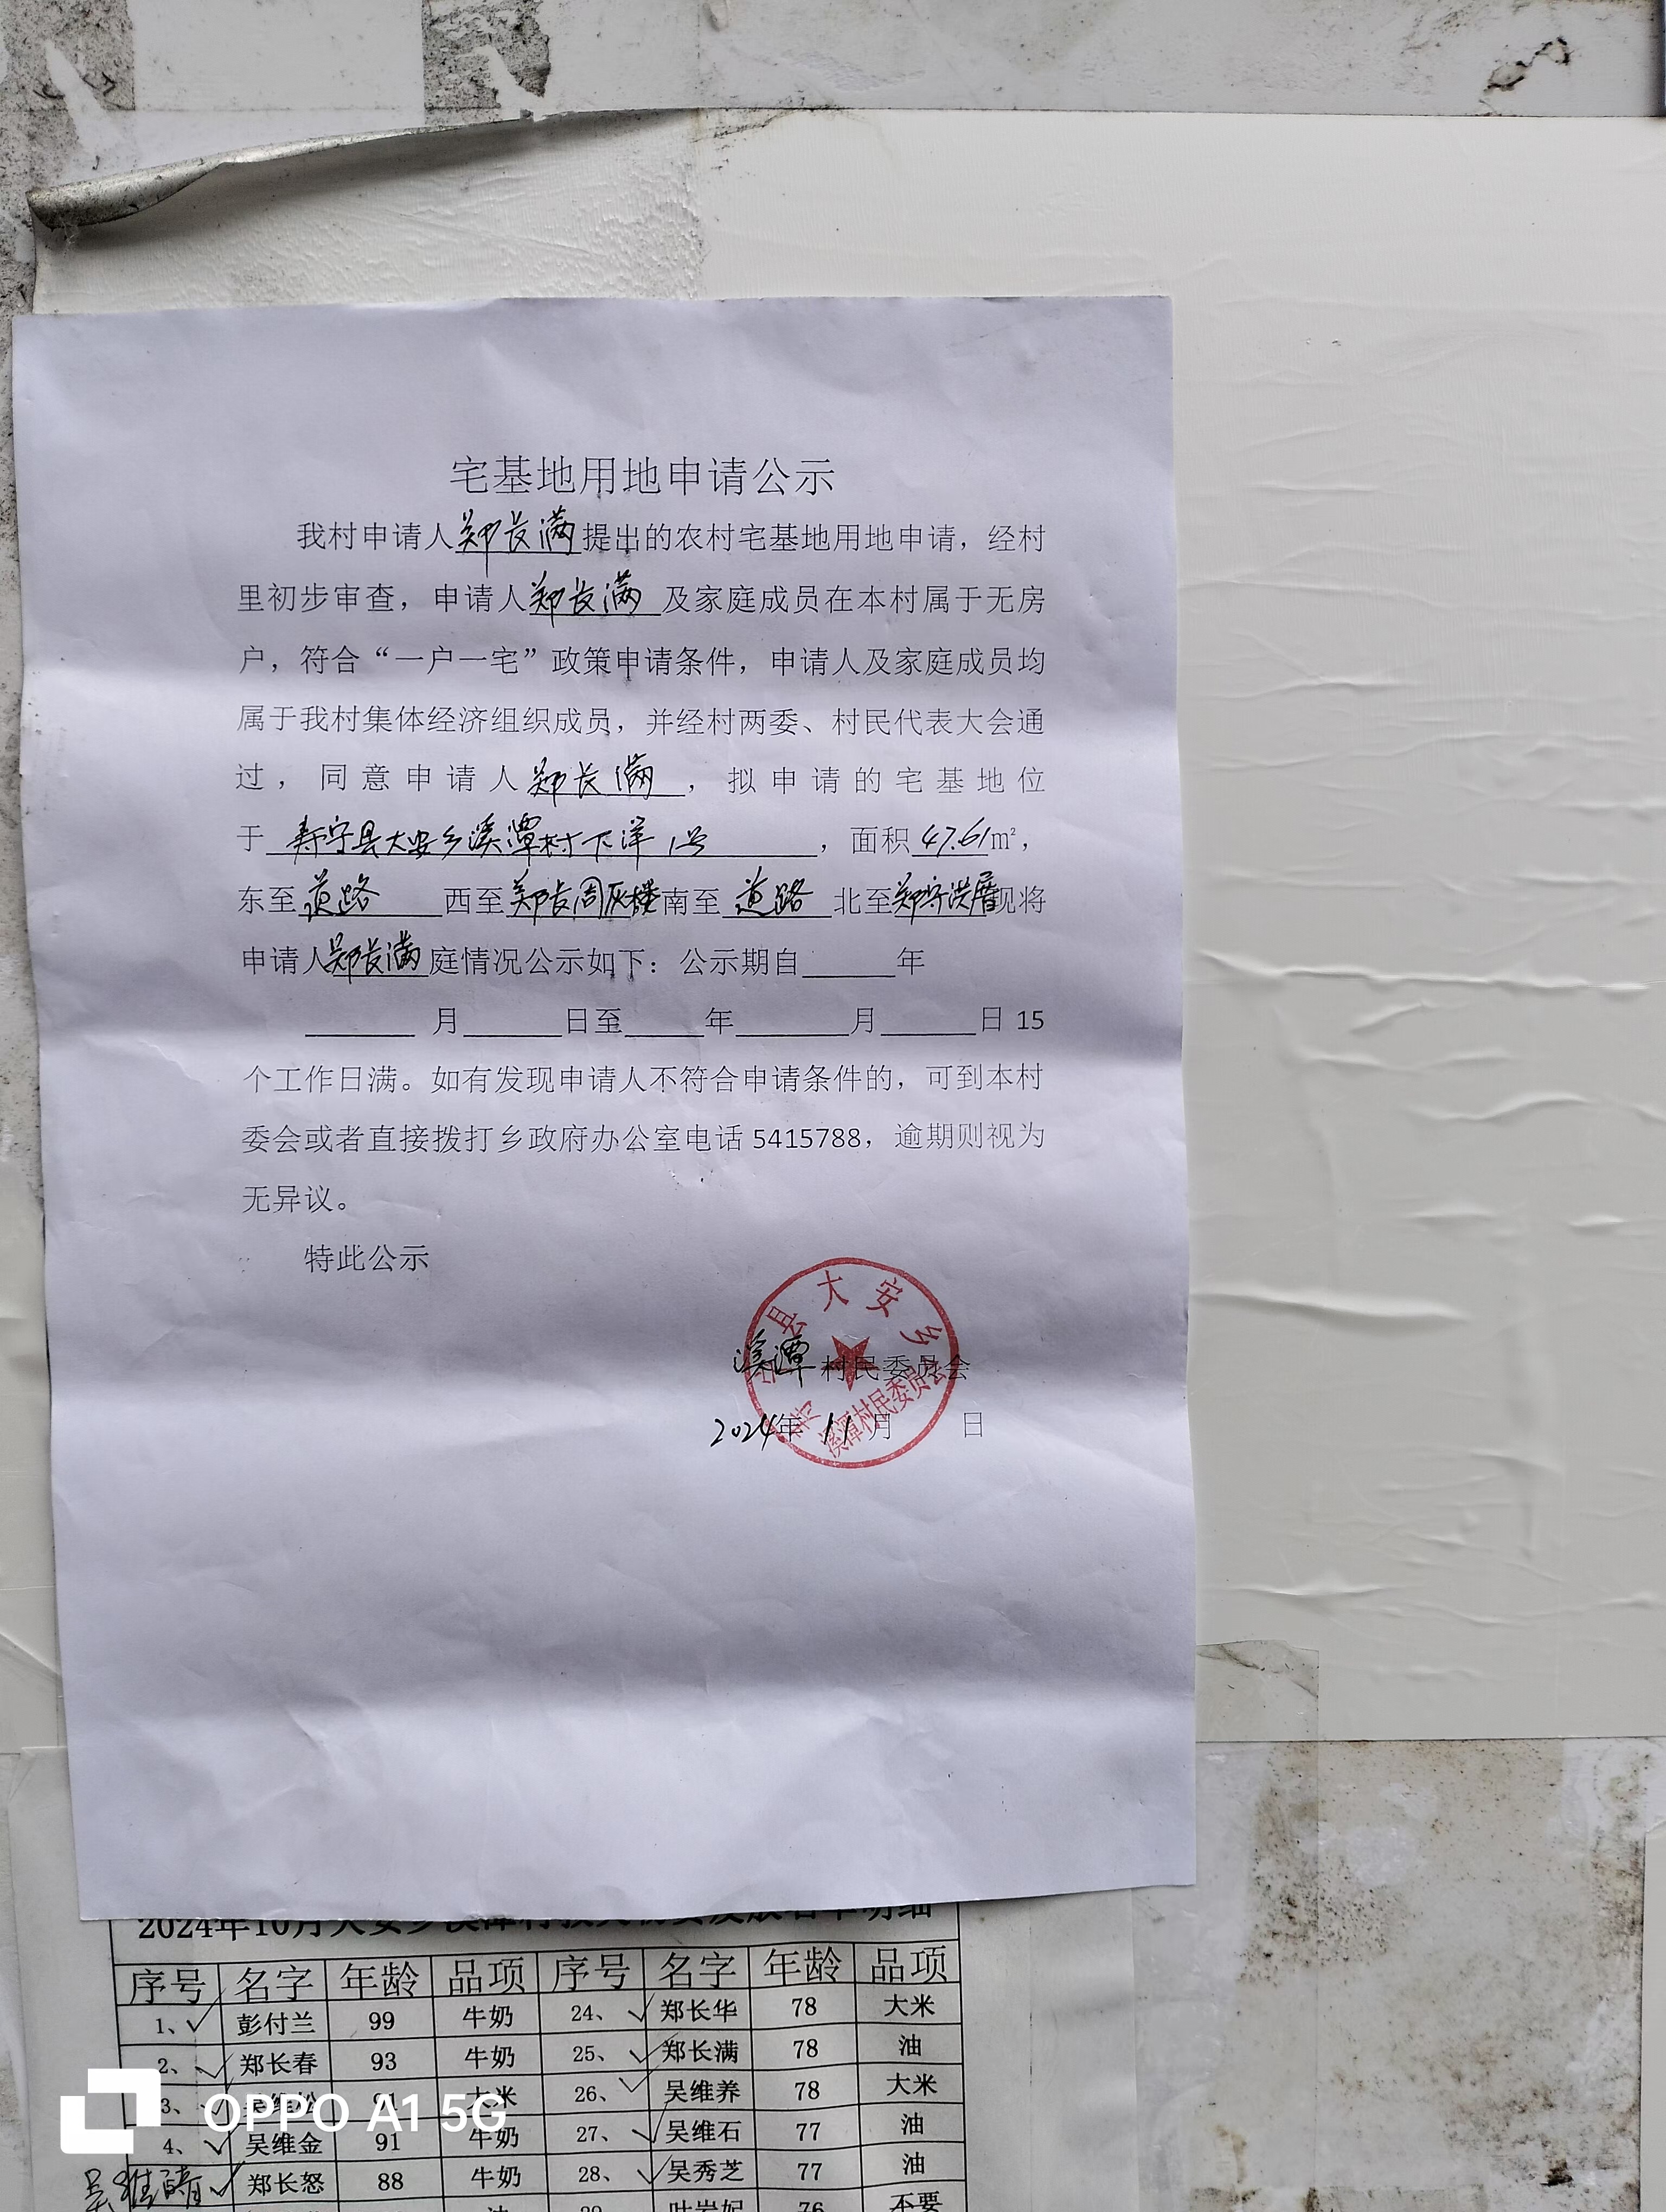 宅基地用地申请公示
我村申请人郑长满提出的农村宅基地用地申请，经村
里初步审查，申请人郑长满及家庭成员在本村属于无房
户，符合“一户一宅”政策申请条件，申请人及家庭成员均
属于我村集体经济组织成员，并经村两委、村民代表大会通
过，同意申请人郑长满，拟申请的宅基地位
于寿宁县大安乡溪潭村下洋1号，面积47.61㎡，
东至道路 西至郑长周灰楼南至道路 北至郑守洪现将
申请人郑长满庭情况公示如下：公示期自______年
______月______日至_____年______月______日 15
个工作日满。如有发现申请人不符合申请条件的，可到本村
委会或者直接拨打乡政府办公室电话 5415788，逾期则视为
无异议。
特此公示
溪潭村民委员会
2024年11月 日
寿宁县大安乡
溪潭村民委员会
2024年10月大安乡溪潭村
序号 名字 年龄 品项 序号 名字 年龄 品项
1、 彭付兰 99 牛奶 24、 郑长华 78 大米
2、 郑长春 93 牛奶 25、 郑长满 78 油
3、 吴维松 91 大米 26、 吴维养 78 大米
4、 吴维金 91 牛奶 27、 吴维石 77 油
郑长怒 88 牛奶 28、 吴秀芝 77 油
76 不要
OPPO A1 5G